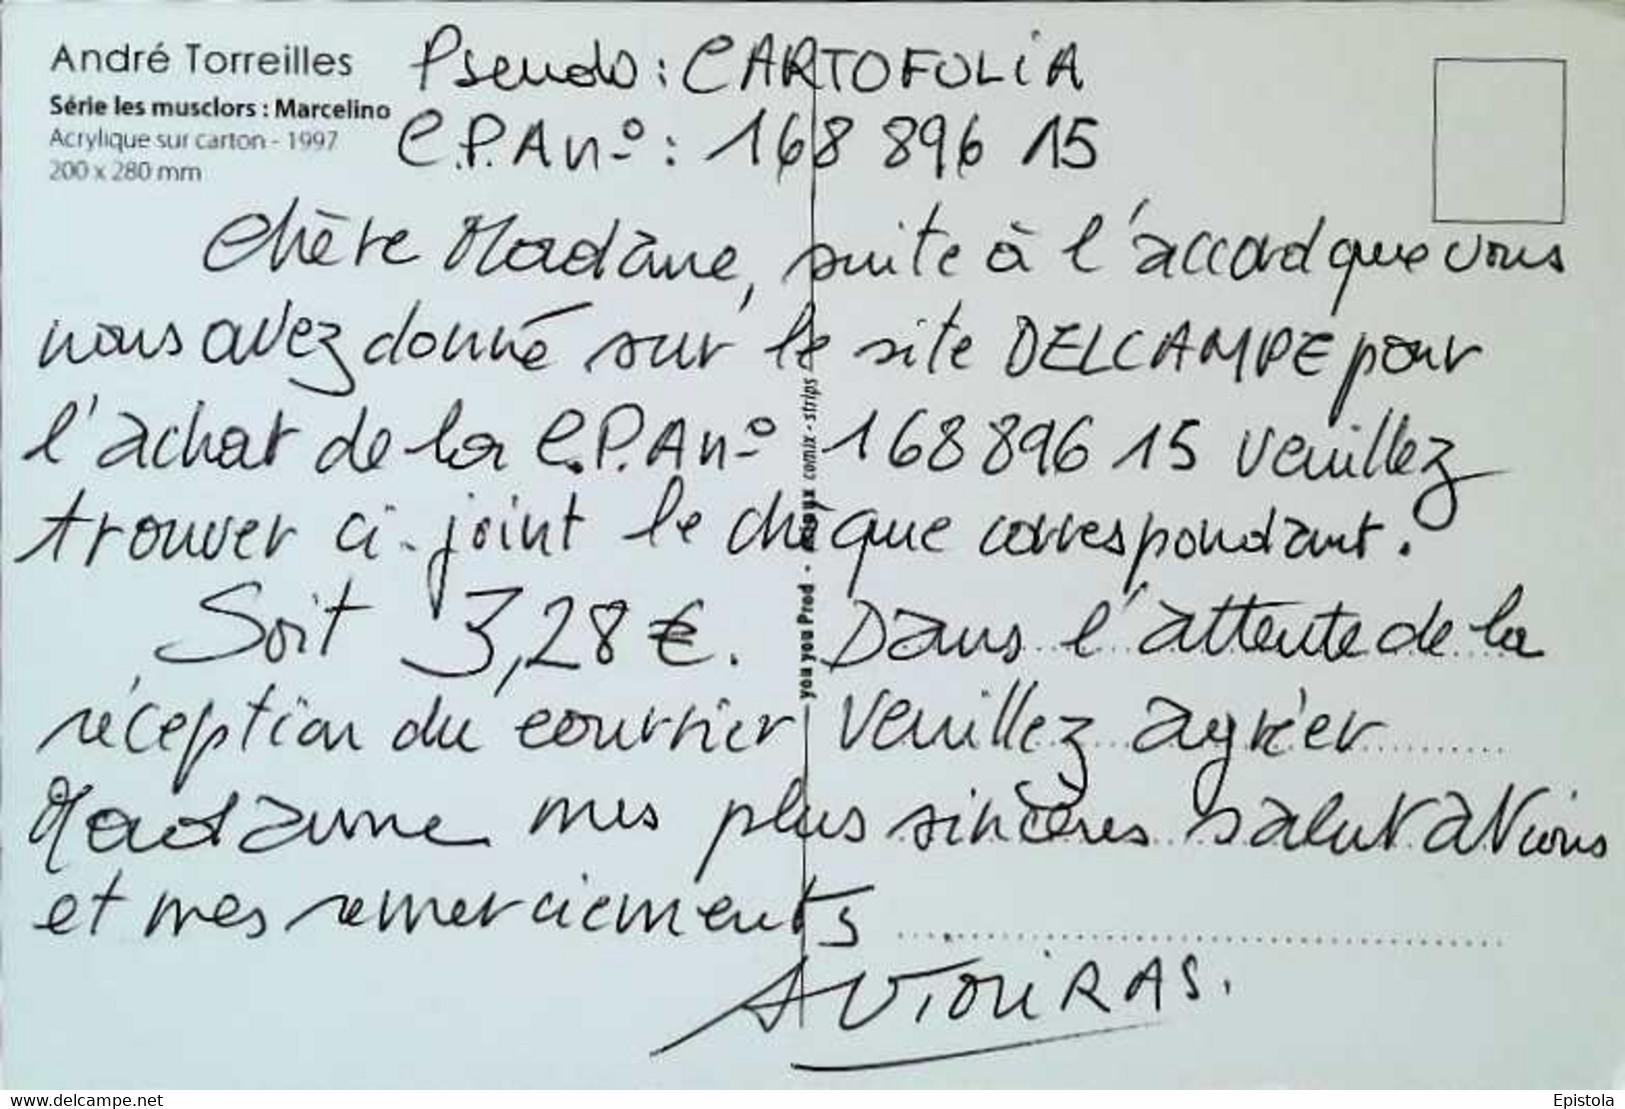 André Torreilles
Série les musclors : Marcelino
Acrylique sur carton - 1997
200 x 280 mm
Pseudo : CARTOFOLiA
C.P.A nº : 168 896 15
Chère Madame, suite à l'accord que vous
nous avez donné sur le site DELCAMPE pour
l'achat de la C.P.A nº 168 896 15 veuillez
trouver ci-joint le chèque correspondant.
Soit 3,28 €. Dans l'attente de la
réception du courrier veuillez agréer
Madame mes plus sincères salutations
et mes remerciements
you you Prod - comix - strips
www.delcampe.net
Epistola